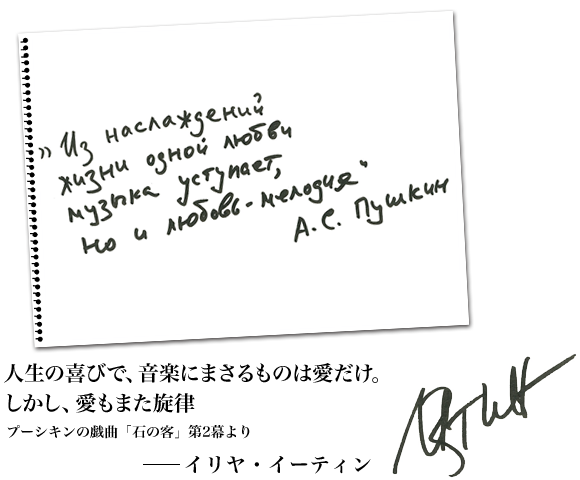 „Из наслаждений
жизни одной любви
музыка уступает,
но и любовь-мелодия“
А.С. Пушкин
人生の喜びで、音楽にまさるものは愛だけ。
しかし、愛もまた旋律
プーシキンの戯曲「石の客」第2幕より
── イリヤ・イーティン